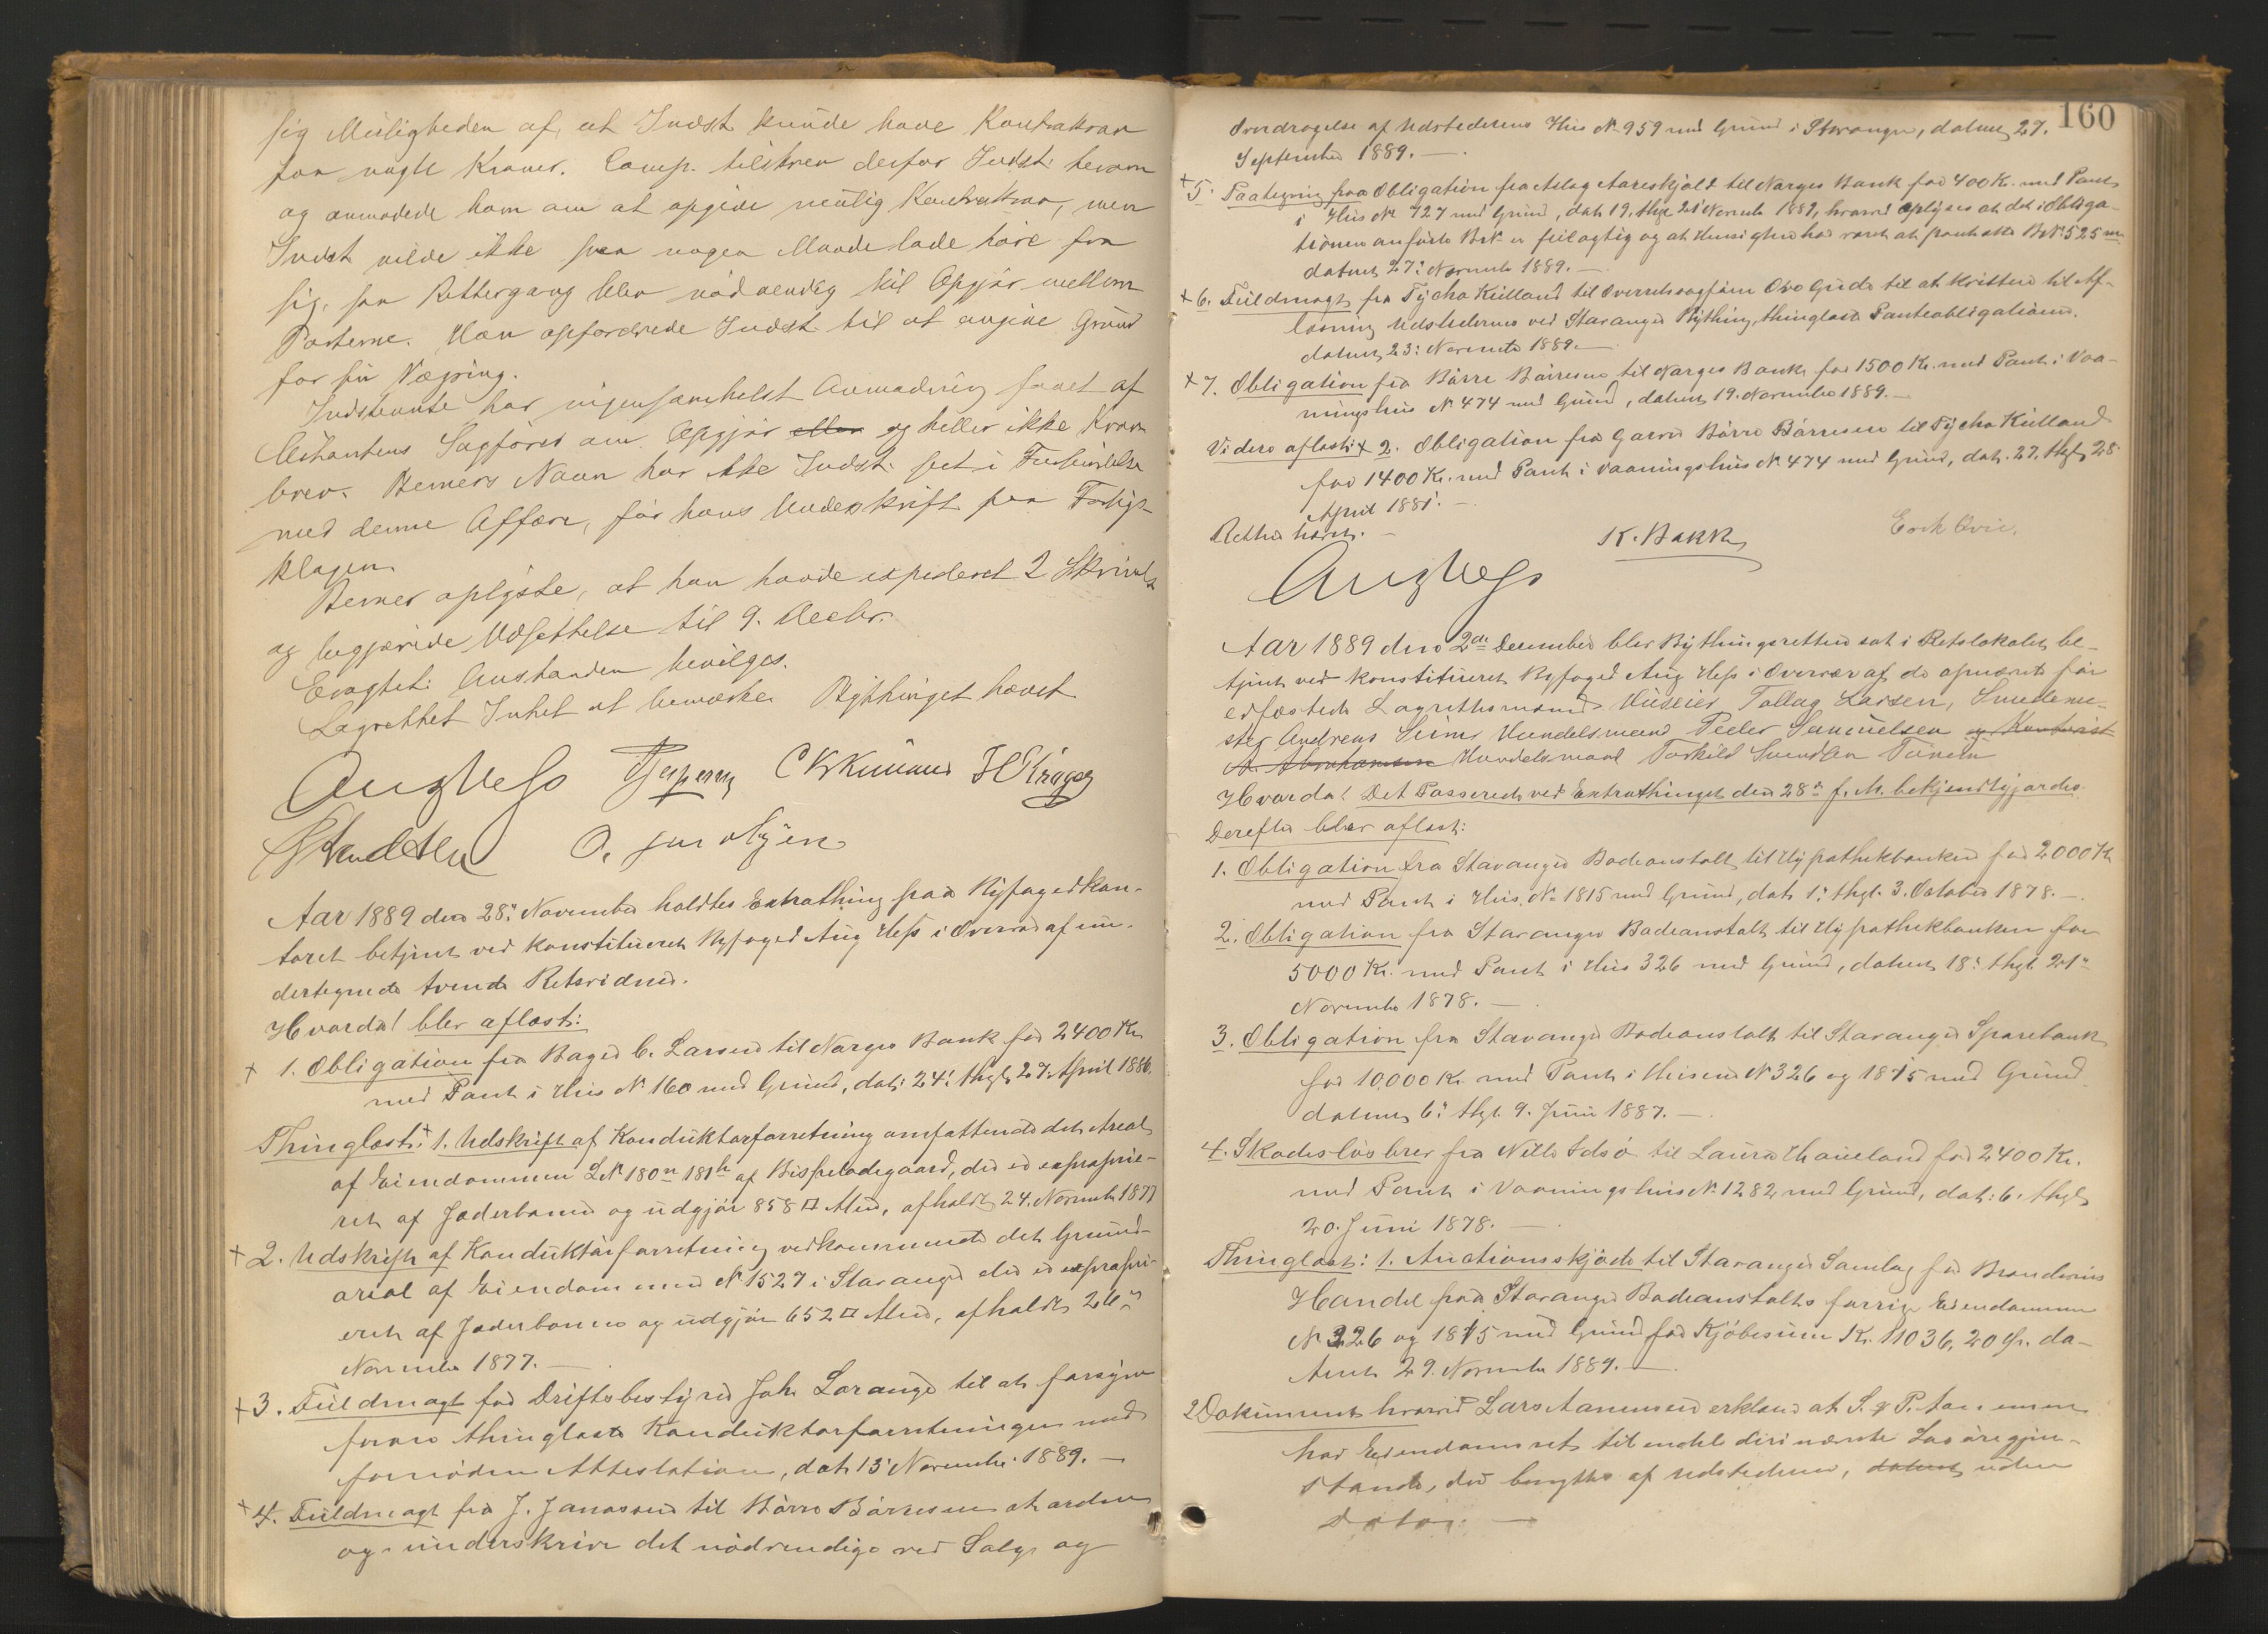 sig Muligheden af, at Indst kunde have Kontrakrav
paa nogle Kroner. Comp. tilskrev derfor Indst. herom
og anmodede ham om at opgive mulig Kontrakrav, men
Indst vilde ikke paa nogen Maade lade høre fra
sig, saa Rettergang blev nødvendig til Opgjør mellem
Parterne. Han opfordrede Indst. til at angive Grund
for sin Vægring.
Indstevnte har ingensomhelst Anmodning faaet af
Citantens Sagfører om Opgjør eller og heller ikke Krav-
brev. Berners Navn har ikke Indst. set i Forbindelse
med denne Affære, før hans Underskrift paa Forligs-
klagen.
Berner oplyste, at han havde expederet 2 Skrivelser
og begjærede Udsættelse til 9. Decbr.
Eragtet: Anstanden bevilges.
Lagrettet Intet at bemærke. Bythinget hævet
Aug Hess Jespersen
Aar 1889 den 28: November holdtes Extrathing paa Byfogedkon-
toret betjent ved konstitueret Byfoged Aug Hess i Overvær af un-
dertegnede tvende Retsvidner.
Hvorda! blev aflæst:
+ 1. Obligation fra Bager C. Larsen til Norges Bank for 2400 Kr
med Pant i Hus N 160 med Grund, dat: 24: thgl. 27. April 1886.
Thinglæst: + 1. Udskrift af Konduktørforretning omfattende det Areal
af Eiendommen LN 180 181 af Bispeladegaard, der er exproprie-
ret af Jæderbanen og udgjør 858 □ Alen, afholdt 24. Novembr 1877
+ 2. Udskrift af Konduktørforretning vedkommende det Grund-
areal af Eiendommen N 1527 i Stavanger der er expropri-
eret af Jæderbanen og udgjør 652 □ Alen, afholdt 26:
Novembr 1877. —
+ 3. Fuldmagt for Driftsbestyrer Joh. Lorange til at forsyne
foran thinglæste Konduktørforretninger med
fornøden Attestation, dat. 15 Novembr. 1889. —
+ 4. Fuldmagt fra J. Janassen til Børre Børresen at ordne
og underskrive det nødvendige ved Salg og
160
Overdragelse af Udstederens Hus N 959 med Grund i Stavanger, datert 27.
September 1889. —
+ 5. Paategning paa Obligation fra Aslag Aareskjold til Norges Bank for 400 Kr. med Pant
i Hus N 727 med Grund, dat. 19. thgl 21 Novembr 1889, hvorved oplyses at det i Obliga-
tionen anførte BN er feilagtig og at Hensigten har været at pantsætte BN 525
datert 27: Novembr 1889. —
+ 6. Fuldmagt fra Tycho Kielland til Overretssagfører Ove Gude til at kvittere til Af-
løsning Udstederens ved Stavanger Bything, thinglæste Panteobligationer.
datert 23: Novembr 1889. —
+ 7. Obligation fra Børre Børresen til Norges Bank for 1500 Kr. med Pant i Vaa-
ningshus N 474 med Grund, datert 19. November 1889. —
Videre aflæst: + 2. Obligation fra Garver Børre Børresen til Tycho Kielland
for 1400 Kr. med Pant i Vaaningshus N 474 med Grund, dat. 27. thgl. 28
April 1881. —
Retten hævet. —
Aug Hess
K. Bakk
Erik Ovie.
Aar 1889 den 2den December blev Bythingsretten sat i Retslokalet be-
tjent ved konstitueret Byfoged Aug Hess i Overvær af de opnævnte før
edfæstede Lagrettesmænd Huseier Tollag Larsen, Smedeme-
ster Andreas Seines Handelsmand Peder Samuelsen og Kontorist
A. Abrahamsen Handelsmand Torkild Svendsen Tunem
Hvorda! Det Passerede ved Extrathinget den 28de f. M. bekjendtgjordes.
Derefter blev aflæst:
1. Obligation fra Stavanger Badeanstalt til Hypothekbanken for 2000 Kr
med Pant i Hus N. 1815 med Grund, dat. 1: thgl. 3. October 1878. —
2. Obligation fra Stavanger Badeanstalt til Hypothekbanken for
5000 Kr. med Pant i Hus 326 med Grund, datert 18: thgl. 21:
Novembr 1878. —
3. Obligation fra Stavanger Badeanstalt til Stavanger Sparebank
for 10,000 Kr. med Pant i Husene N 326 og 1815 med Grund
datert 6: thgl. 9. Juni 1887. —
4. Skadesløsbrev fra Nills Idsø til Laura Haueland for 2400 Kr.
med Pant i Vaaningshus N. 1282 med Grund, dat: 6. thgl.
20. Juni 1878. —
Thinglæst: 1. Auctionsskjøde til Stavanger Samlag for Brændevins
Handel paa Stavanger Badeanstalts forrige Eiendomme
N. 326 og 1815 med Grund for Kjøbesum Kr. 11036,20 Ør. da-
tert 29. Novembr 1889. —
2 Dokument hvorved Lars Aanensen erklærer at S. & P. Aanensen
har Eiendomsret til endel deri nævnte Løsøregjen-
stande, der benyttes af Udstederen, datert uden
Dato. —